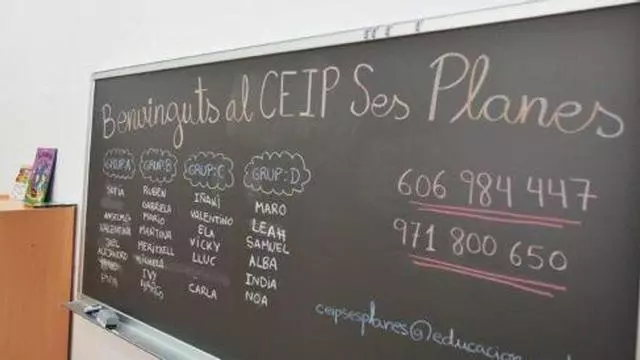 Benvinguts al CEIP Ses Planes
GRUP:A
SOFÍA
ANSELMO
VALENTINA
JOEL
ALEJANDRO
GRUP:B
RUBÉN
GABRIELA
MARIO
MARTINA
MERITXELL
IVO
GRUP:C
IÑAKI
VALENTINO
ELA
VICKY
LLUC
CARLA
GRUP:D
MARO
LEAH
SAMUEL
ALBA
INDIA
NOA
606 984 447
971 800 650
ceipsesplanes@educacion